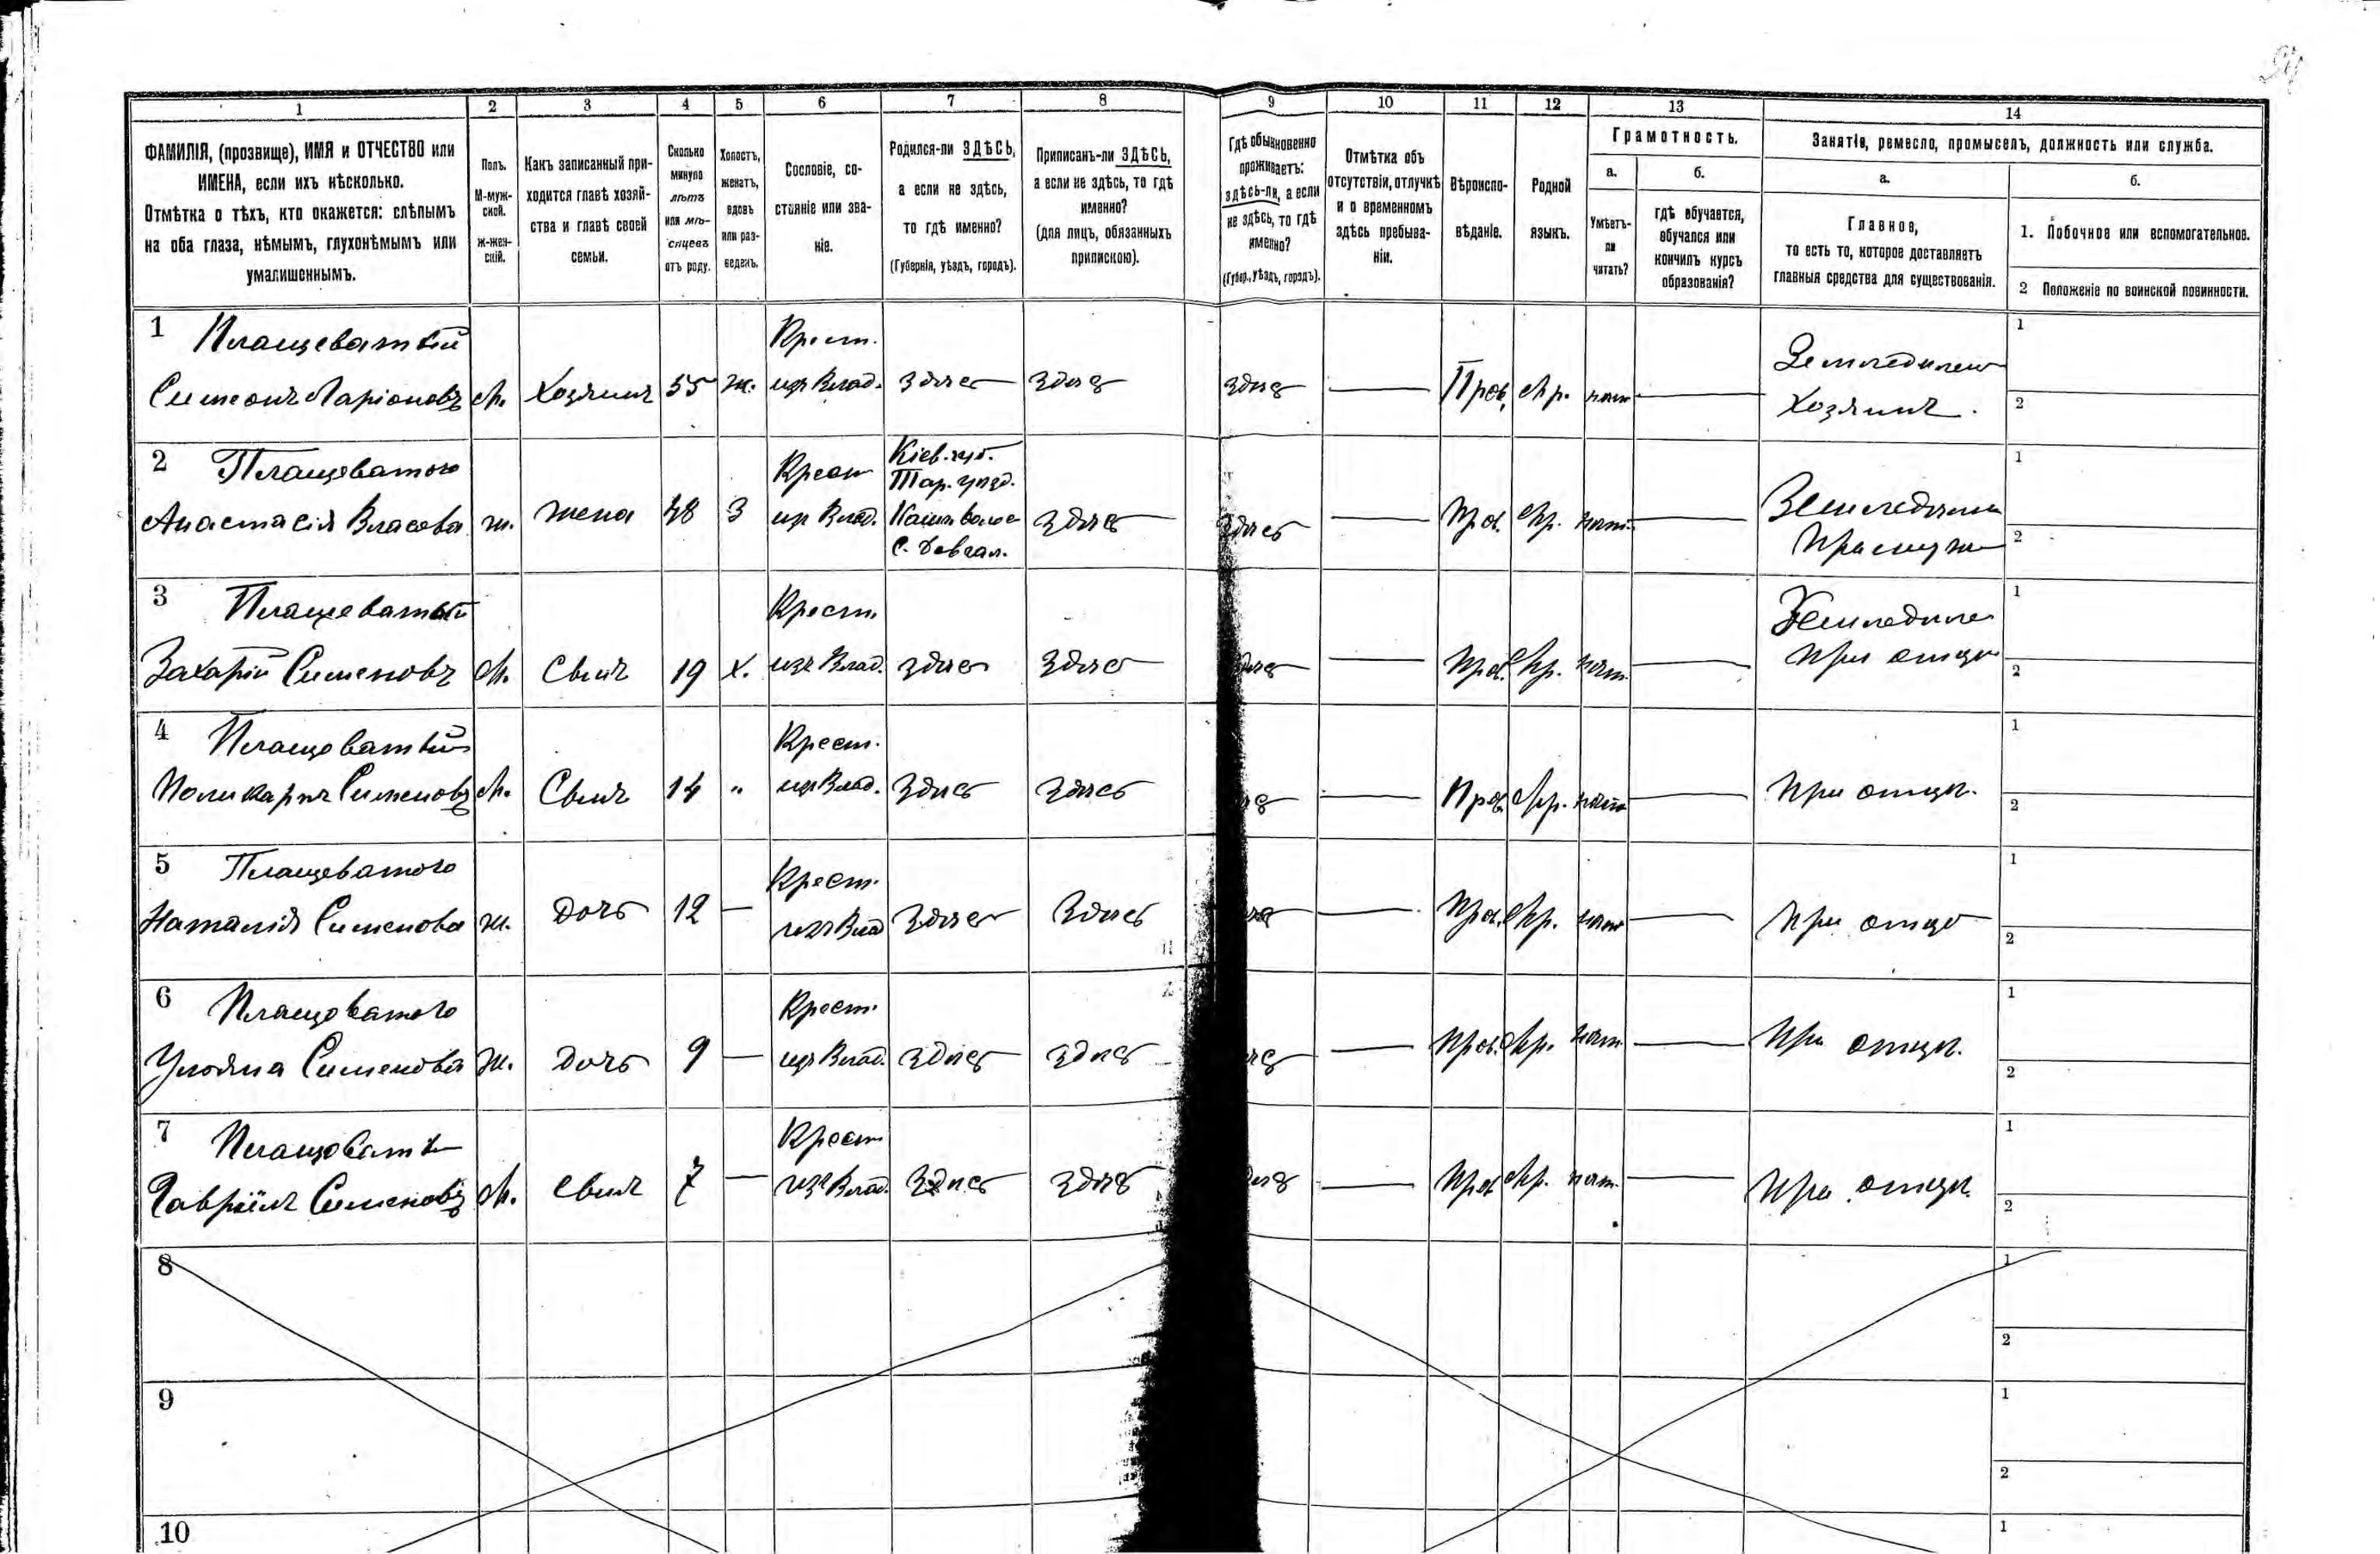 1
2
3
4
5
6
7
8
9
10
11
12
13
14
ФАМИЛІЯ, (прозвище), ИМЯ и ОТЧЕСТВО или
ИМЕНА, если ихъ нѣсколько.
Отмѣтка о тѣхъ, кто окажется: слѣпымъ
на оба глаза, нѣмымъ, глухонѣмымъ или
умалишеннымъ.
Полъ.
М-муж-
ской.
ж-жен-
скій.
Какъ записанный при-
ходится главѣ хозяй-
ства и главѣ своей
семьи.
Сколько
минуло
лѣтъ
или мѣ-
сяцевъ
отъ роду.
Холостъ,
женатъ,
вдовъ
или раз-
веденъ.
Сословіе, со-
стояніе или зва-
ніе.
Родился-ли ЗДѢСЬ,
а если не здѣсь,
то гдѣ именно?
(Губернія, уѣздъ, городъ).
Приписанъ-ли ЗДѢСЬ,
а если не здѣсь, то гдѣ
именно?
(для лицъ, обязанныхъ
припискою).
Гдѣ обыкновенно
проживаетъ:
здѣсь-ли, а если
не здѣсь, то гдѣ
именно?
(Губер., уѣздъ, городъ).
Отмѣтка объ
отсутствіи, отлучкѣ
и о временномъ
здѣсь пребыва-
ніи.
Вѣроиспо-
вѣданіе.
Родной
языкъ.
Грамотность.
а.
Умѣетъ-
ли
читать?
б.
гдѣ обучается,
обучался или
кончилъ курсъ
образованія?
Занятіе, ремесло, промыселъ, должность или служба.
а.
Главное,
то есть то, которое доставляетъ
главныя средства для существованія.
б.
1. Побочное или вспомогательное.
2 Положеніе по воинской повинности.
1 Плащеватый
Симеонъ Ларіоновъ м. Хозяинъ 55 ж. Крест. изъ Влад. здѣсь здѣсь здѣсь — Прав. Мр. нѣт — Земледѣлец Хозяинъ. 1 2
2 Плащеватого
Анастасія Власова ж. жена 48 З Крест изъ Влад. Кіев. губ.
Тар. уѣзд.
здѣсь здѣсь — Прав. Мр. нѣт. — 1 2
3 Плащеватый
Захарій Сименовъ м. Сынъ 19 х. Крест. изъ Влад. здѣсь здѣсь — Прав. Мр. нѣт. — при отцѣ 1 2
4 Плащеватый
Поликарпъ Сименовъ м. Сынъ 14 „ Крест. изъ Влад. здѣсь здѣсь — Прав. Мр. нѣт — При отцѣ. 1 2
5 Плащеватого
Наталія Сименова ж. дочь 12 — Крест. изъ Влад здѣсь здѣсь — Прав. Мр. нѣт — При отцѣ 1 2
6 Плащеватого
Ульяна Сименова ж. дочь 9 — Крест. изъ Влад. здѣсь здѣсь — Прав. Мр. нѣт — При отцѣ. 1 2
7 Плащеваты
Гавріилъ Сименовъ м. сынъ 7 — Крест изъ Влад. здѣсь здѣсь — Прав Мр. нѣт. — При отцѣ. 1 2
8
1
2
9
1
2
10
1